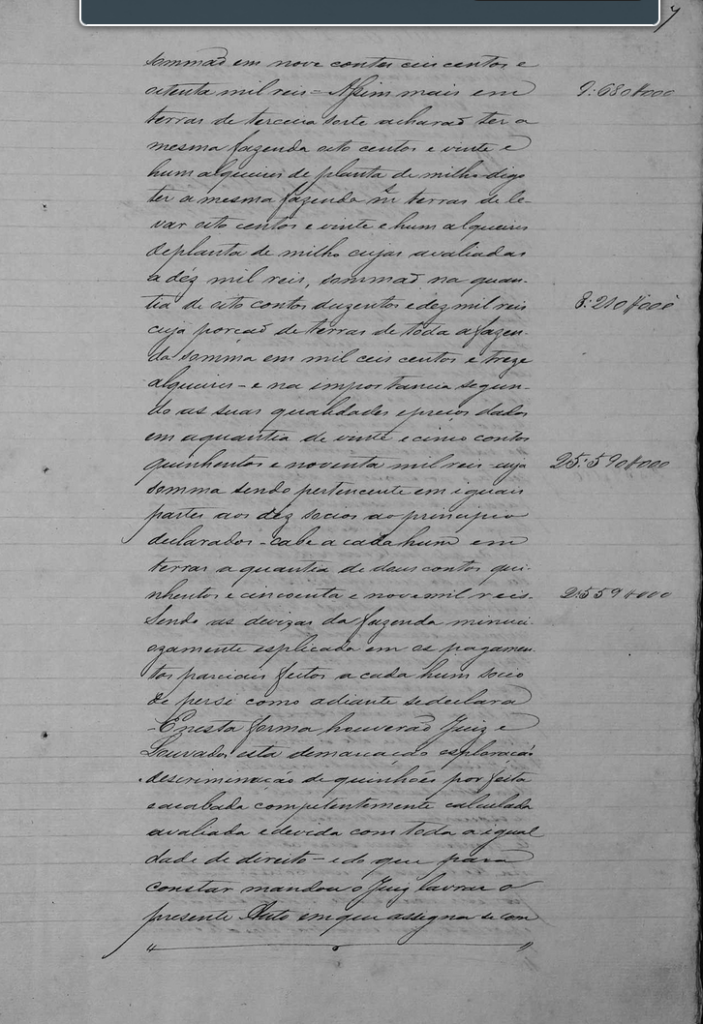 7
sommaõ em nove contos ceis centos e
oitenta mil reis = Assim mais em 9:680$000
terras de terceira sorte acharaõ ter a
mesma fazenda oito centos e vinte e
hum alqueires de planta de milho digo
ter a mesma fazenda em terras de le-
var oito centos e vinte e hum alqueires
de planta de milho cujas avaliadas
a déz mil reis, sommaõ na quan-
tia de oito contos duzentos e dez mil reis 8:210$000
cuja porcaõ de terras de toda a fazen-
da somma em mil ceis centos e treze
alqueires - e na importancia segun-
do as suas qualidades e preços dados
em a quantia de vinte e cinco contos
quinhentos e noventa mil reis cuja 25:590$000
somma sendo pertencente em iguais
partes aos déz socios ao principio
declarados - cabe a cada hum em
terras a quantia de dous contos qui-
nhentos e cincoenta e nove mil reis. 2:559$000
Sendo as devizas da fazenda minuci-
ozamente esplicada em os pagamen-
tos parciais feitos a cada hum socio
de persi como adiante se declara
- E nesta forma houveraõ Juiz e
Louvados esta demarcacaõ esploracaõ
descriminacaõ de quinhões por feita
e acabada competentemente calculada
avaliada e devida com toda a igual
dade de direito - e do que para
constar mandou o Juiz lavrar o
presente Auto em que assigna-se com